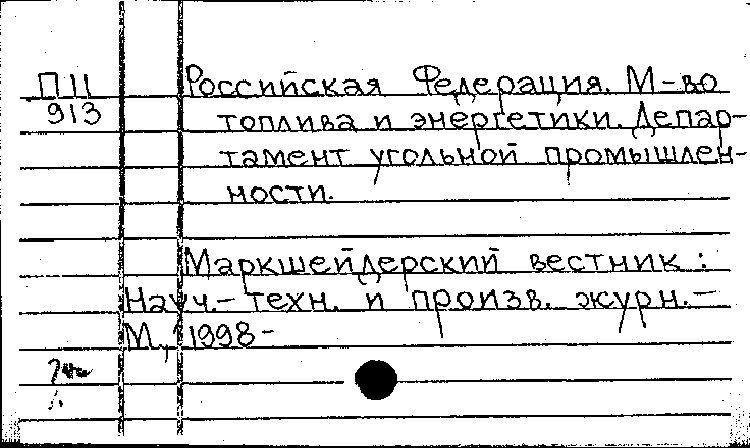 П11
913
Российская Федерация. М-во
топлива и энергетики. Депар-
тамент угольной промышлен-
ности.
Маркшейдерский вестник :
Науч.- техн. и произв. журн. -
М., 1998 -